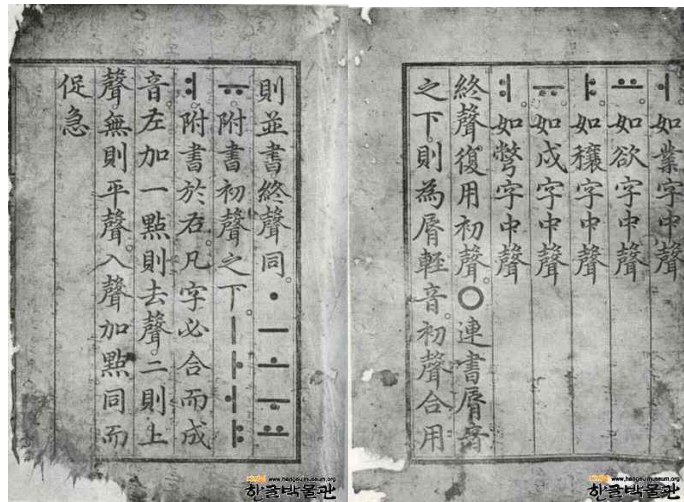 ㅓ。如業字中聲
ㅛ。如欲字中聲
ㅑ。如穰字中聲
ㅠ。如戌字中聲
ㅕ。如彆字中聲
終聲復用初聲。○連書脣音
之下。則為脣輕音。初聲合用
則並書。終聲同。ㆍㅡㅗㅜㅛ
ㅠ。附書初聲之下。ㅣㅏㅓㅑ
ㅕ。附書於右。凡字必合而成
音。左加一點則去聲。二則上
聲。無則平聲。入聲加點同而
促急
www.hangeulmuseum.org
한글박물관
www.hangeulmuseum.org
한글박물관